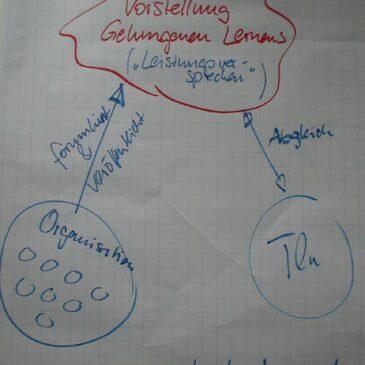 Vorstellung
Gelungenen Lernens
("Leistungsver-
sprechen")
formuliert
&
veröffentlicht
Abgleich
Organisation
Tln